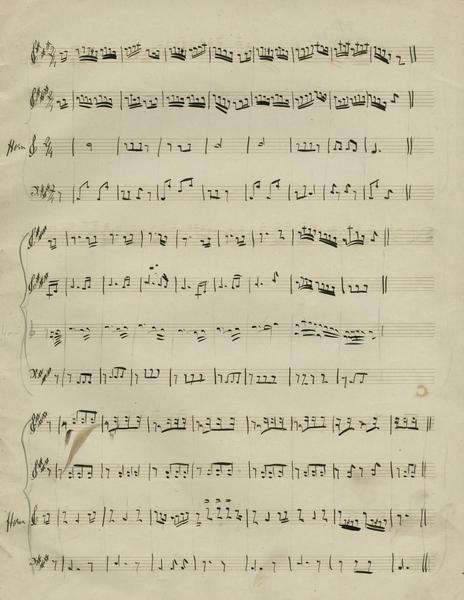 Horn
Horn